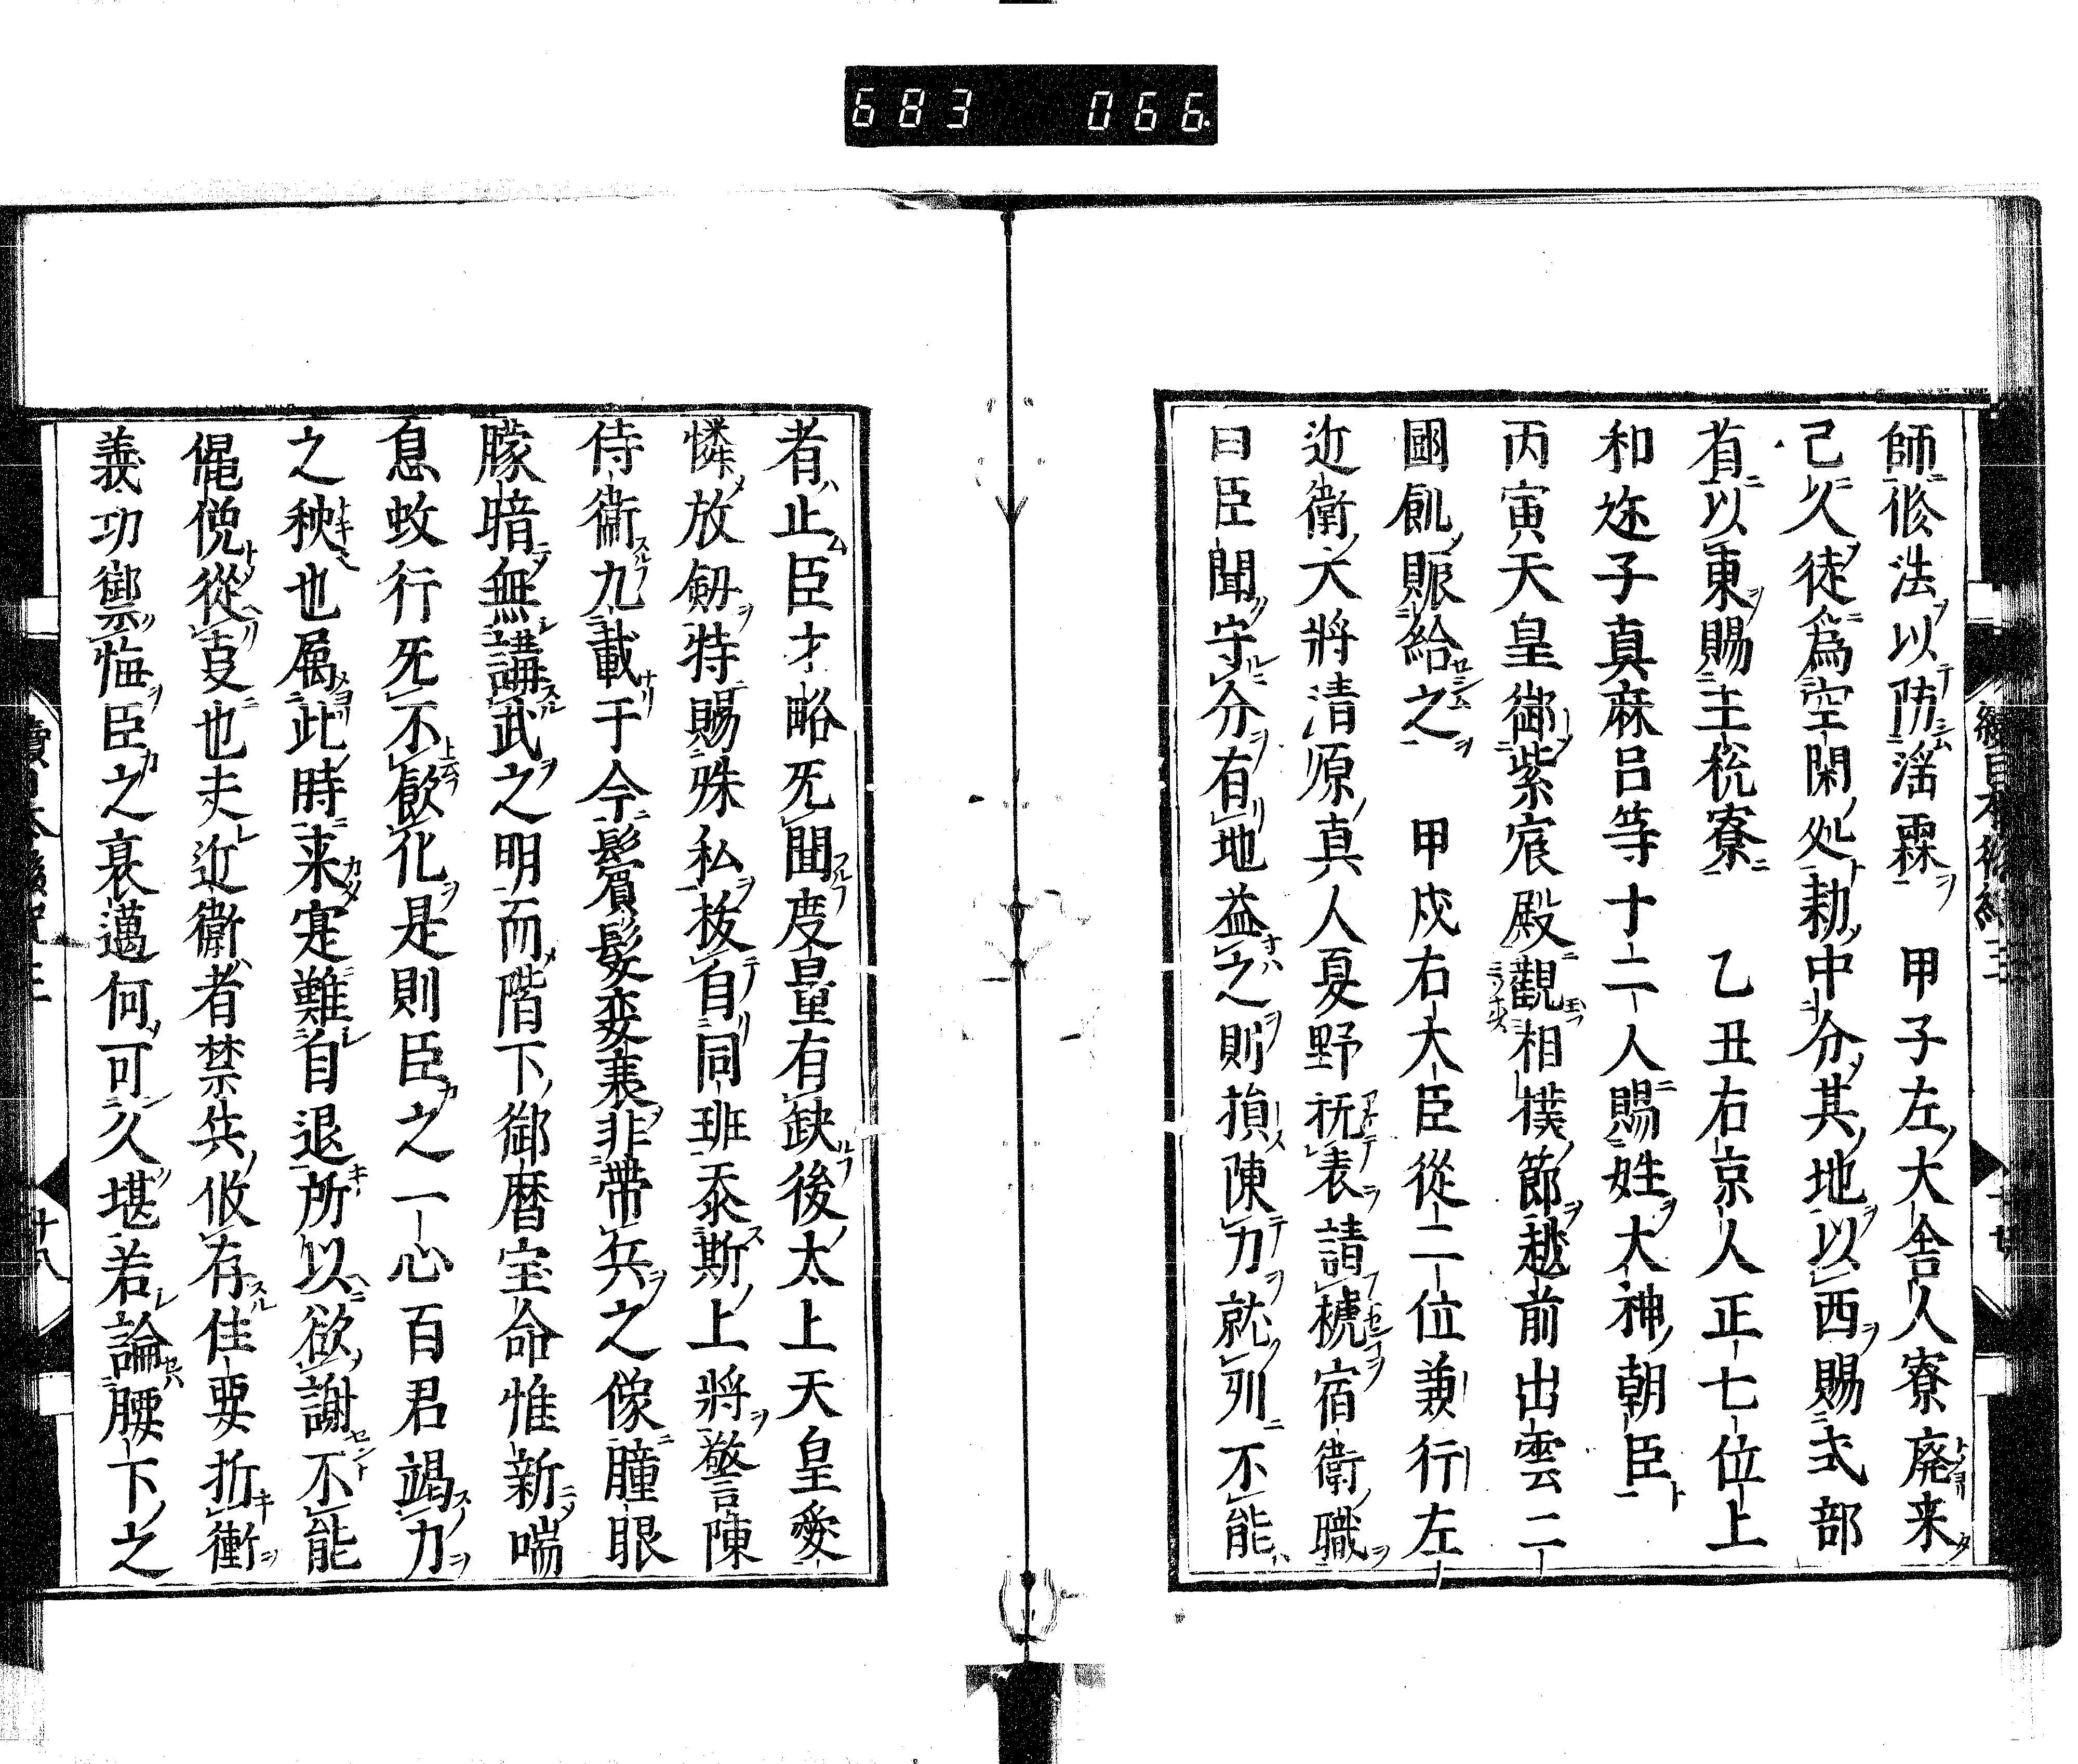 683 066
師修法以防淫霖　甲子左大舎人寮廃来
己久徒為空閑処勅中分其地以西賜式部
省以東賜主税寮　乙丑右京人正七位上
和迩子真麻呂等十二人賜姓大神朝臣
丙寅天皇御紫宸殿観相撲節越前出雲二
國飢賑給之　甲戌右大臣従二位兼行左
近衛大将清原真人夏野抗表請褫宿衛職
曰臣聞守分有地益之則損陳力就列不能
者止臣才略旡聞度量有缺後太上天皇愛
憐放劔特賜殊私抜自同班忝斯上将警陳
侍衛九載于今鬢髪変衰非帯兵之像朣眼
朦暗無講武之明而階下御暦宝命惟新喘
息蚊行旡不歓化是則臣之一心百君竭力
之秧也属此時来寔難自退所以欲謝不能
僶俛從夏也夫近衛者禁兵攸存佳要折衝
義功禦悔臣之衰邁何可久堪若論腰下之